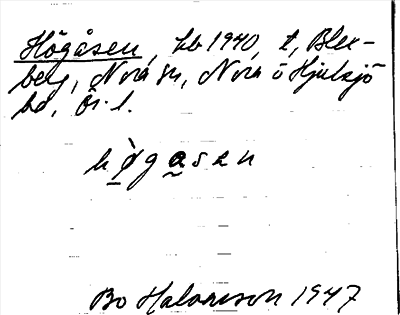 Högåsen, Lb 1940, t, Blex-
berg, Nora sn, Nora o Hjulsjö
bd, Ör. l.
högasen
Bo Halvarson 1947